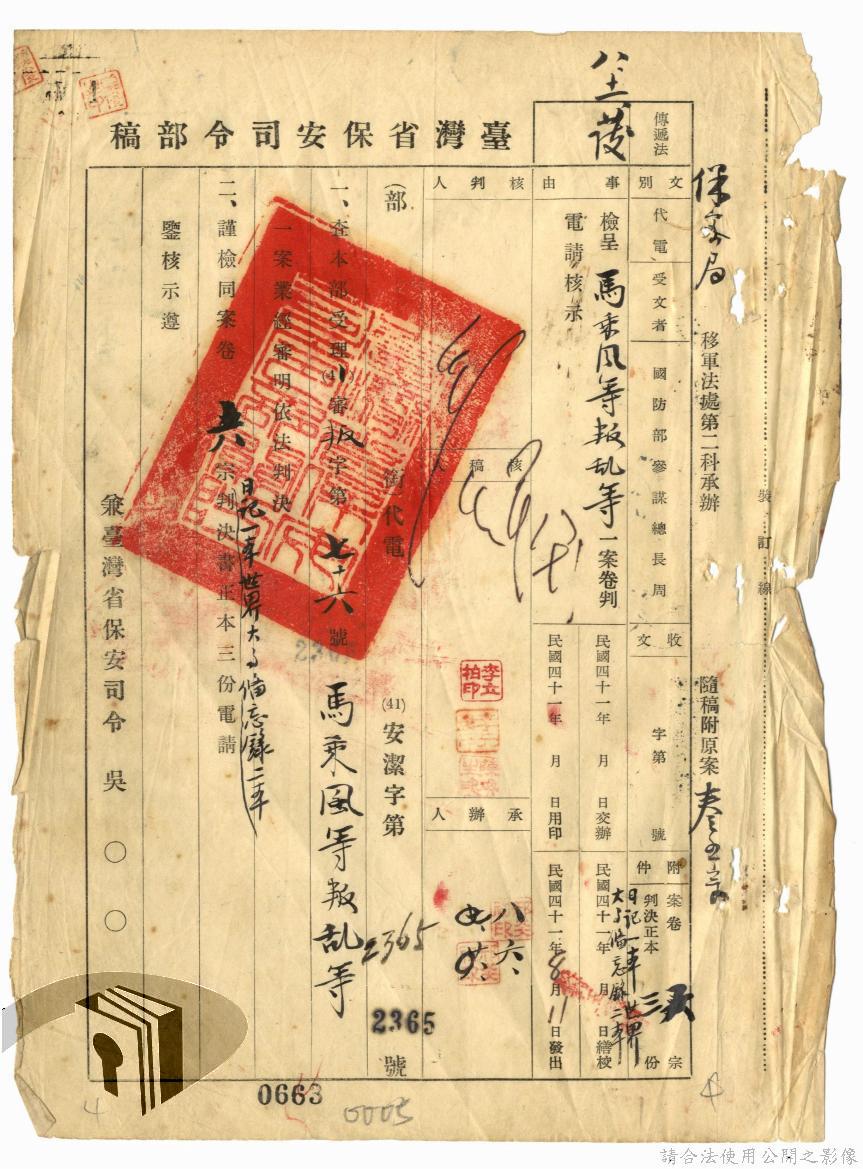 臺灣省保安司令部稿
保密局
移軍法處第二科承辦
隨稿附原案
裝訂線
傳遞法
文別
代電
受文者
國防部參謀總長周
收文
字第
號
附件
案卷
宗
判決正本
三份
日記一本世界大事備忘錄二本
事由
檢呈馬乘風等叛乱等一案卷判
電請核示
民國四十一年 月 日交辦
民國四十一年 月 日繕校
民國四十一年 月 日用印
民國四十一年8月11日發出
核判人
核稿人
承辦人
李立柏印
八六、
(部)銜代電
(41)安潔字第
2365
2365
號
一、查本部受理(41)審叛字第七十六號馬乘風等叛乱等
一案業經審明依法判決
二、謹檢同案卷
宗判決書正本三份電請
日記一本世界大事備忘錄二本
鑒核示遵
兼臺灣省保安司令吳○○
0663
0005
4
請合法使用公開之影像